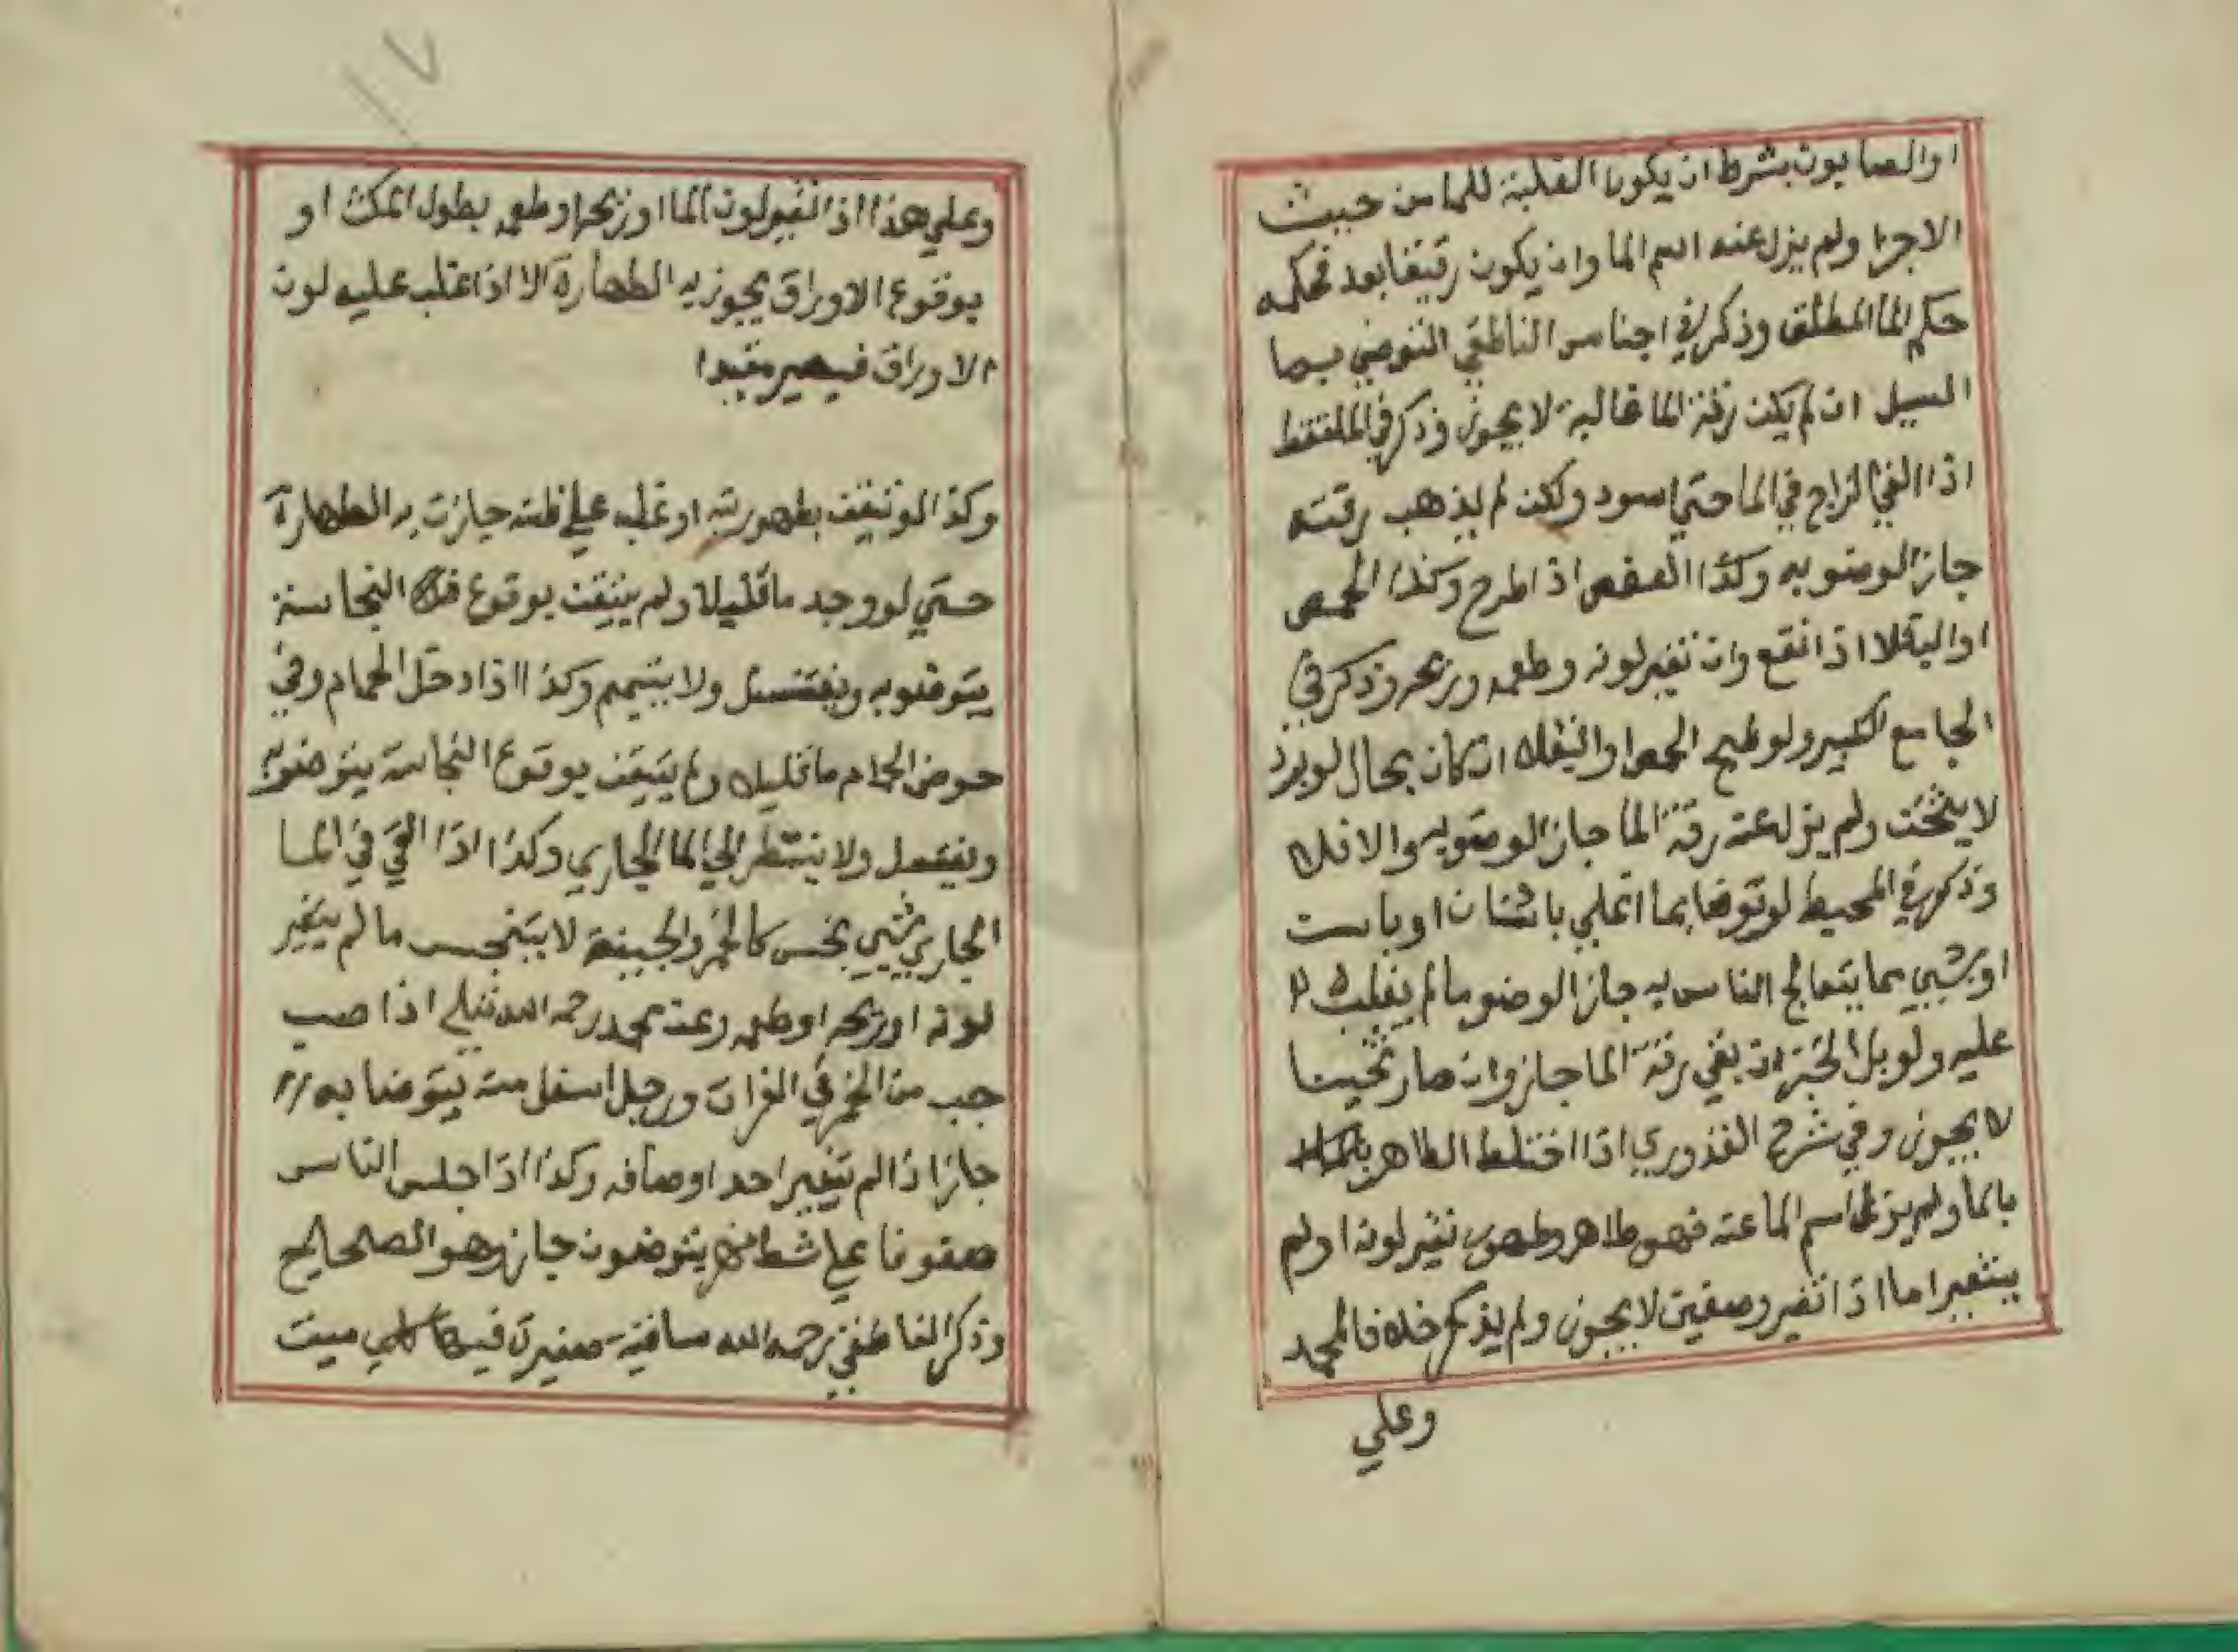 او الصابون بشرط ان يكون الغلبة للما من حيث
الاجزا ولم يزل عنه اسم الما وان يكون رقيقا بعد فحكمه
حكم الما المطلق وذكر في اجناس الناطفي التوضي بما
السيل ان لم يكن رقة الما غالبة لا يجوز وذكر في الملتقط
اذا القي الزاج في الما حتى اسود ولكن لم يذهب رقته
جاز الوضو به وكذا العفص اذا طرح وكذا الحمص
او الباقلا اذا نقع وان تغير لونه وطعمه وريحه وذكر في
الجامع الكبير ولو طبخ الحمص او الباقلا ان كان بحال لو برد
لا يثخن ولم يزل عنه رقة الما جاز الوضو به والا فلا
وذكر في المحيط لو توضا بما اغلي باشنان او باست
او بشي مما يتعالج الناس به جاز الوضو ما لم يغلب
عليه ولو بل الخبز ان بقي رقة الما جاز وان صار ثخينا
لا يجوز وفي شرح القدوري اذا اختلط الطاهر
بالما ولم يزل اسم الما عنه فهو طاهر وطهور تغير لونه او لم
يتغير اما اذا تغير وصفين لا يجوز ولم يذكر خلافا لمحمد
وعلي
١٧
وعلي هذا اذا تغير لون الما او ريحه او طعمه بطول المكث او
بوقوع الاوراق يجوز به الطهارة الا اذا غلب عليه لون
الاوراق فيصير مقيدا
وكذا لو تيقن بطهوريته او غلب علي ظنه جازت به الطهارة
حتي لو وجد ما قليلا ولم يتيقن بوقوع النجاسة
يتوضو به ويغتسل ولا يتيمم وكذا اذا دخل الحمام وفي
حوض الحمام ما قليل ولم يتيقن بوقوع النجاسة يتوضو به
ويغتسل ولا ينتظر الي الما الجاري وكذا اذا القي في الما
الجاري شي نجس كالخمر والجيفة لا يتنجس ما لم يتغير
لونه او ريحه او طعمه وعن محمد رحمه الله تعلي اذا صب
حب من الخمر في الفرات ورجل اسفل منه يتوضا به
جاز اذا لم يتغير احد اوصافه وكذا اذا جلس الناس
صفوفا علي شط نهر يتوضون جاز وهو الصحيح
وذكر الناطفي رحمه الله ساقية صغيرة فيها كلب ميت